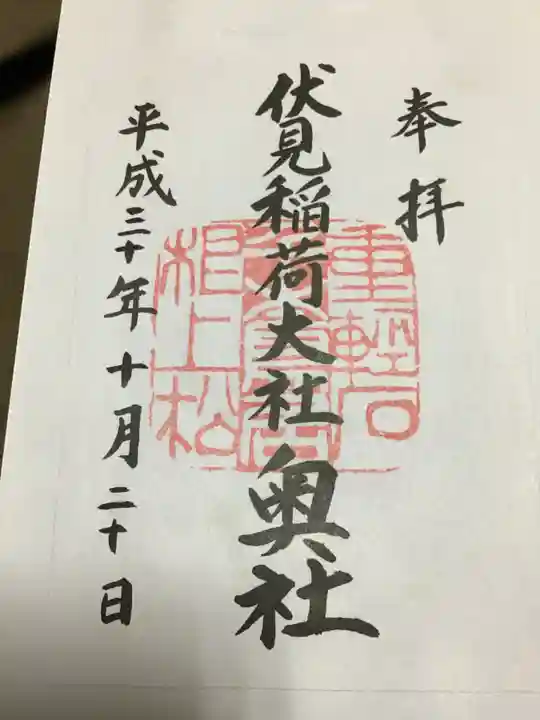 奉拝
伏見稲荷大社奥社
平成三十年十月二十日
重軽石
根上松